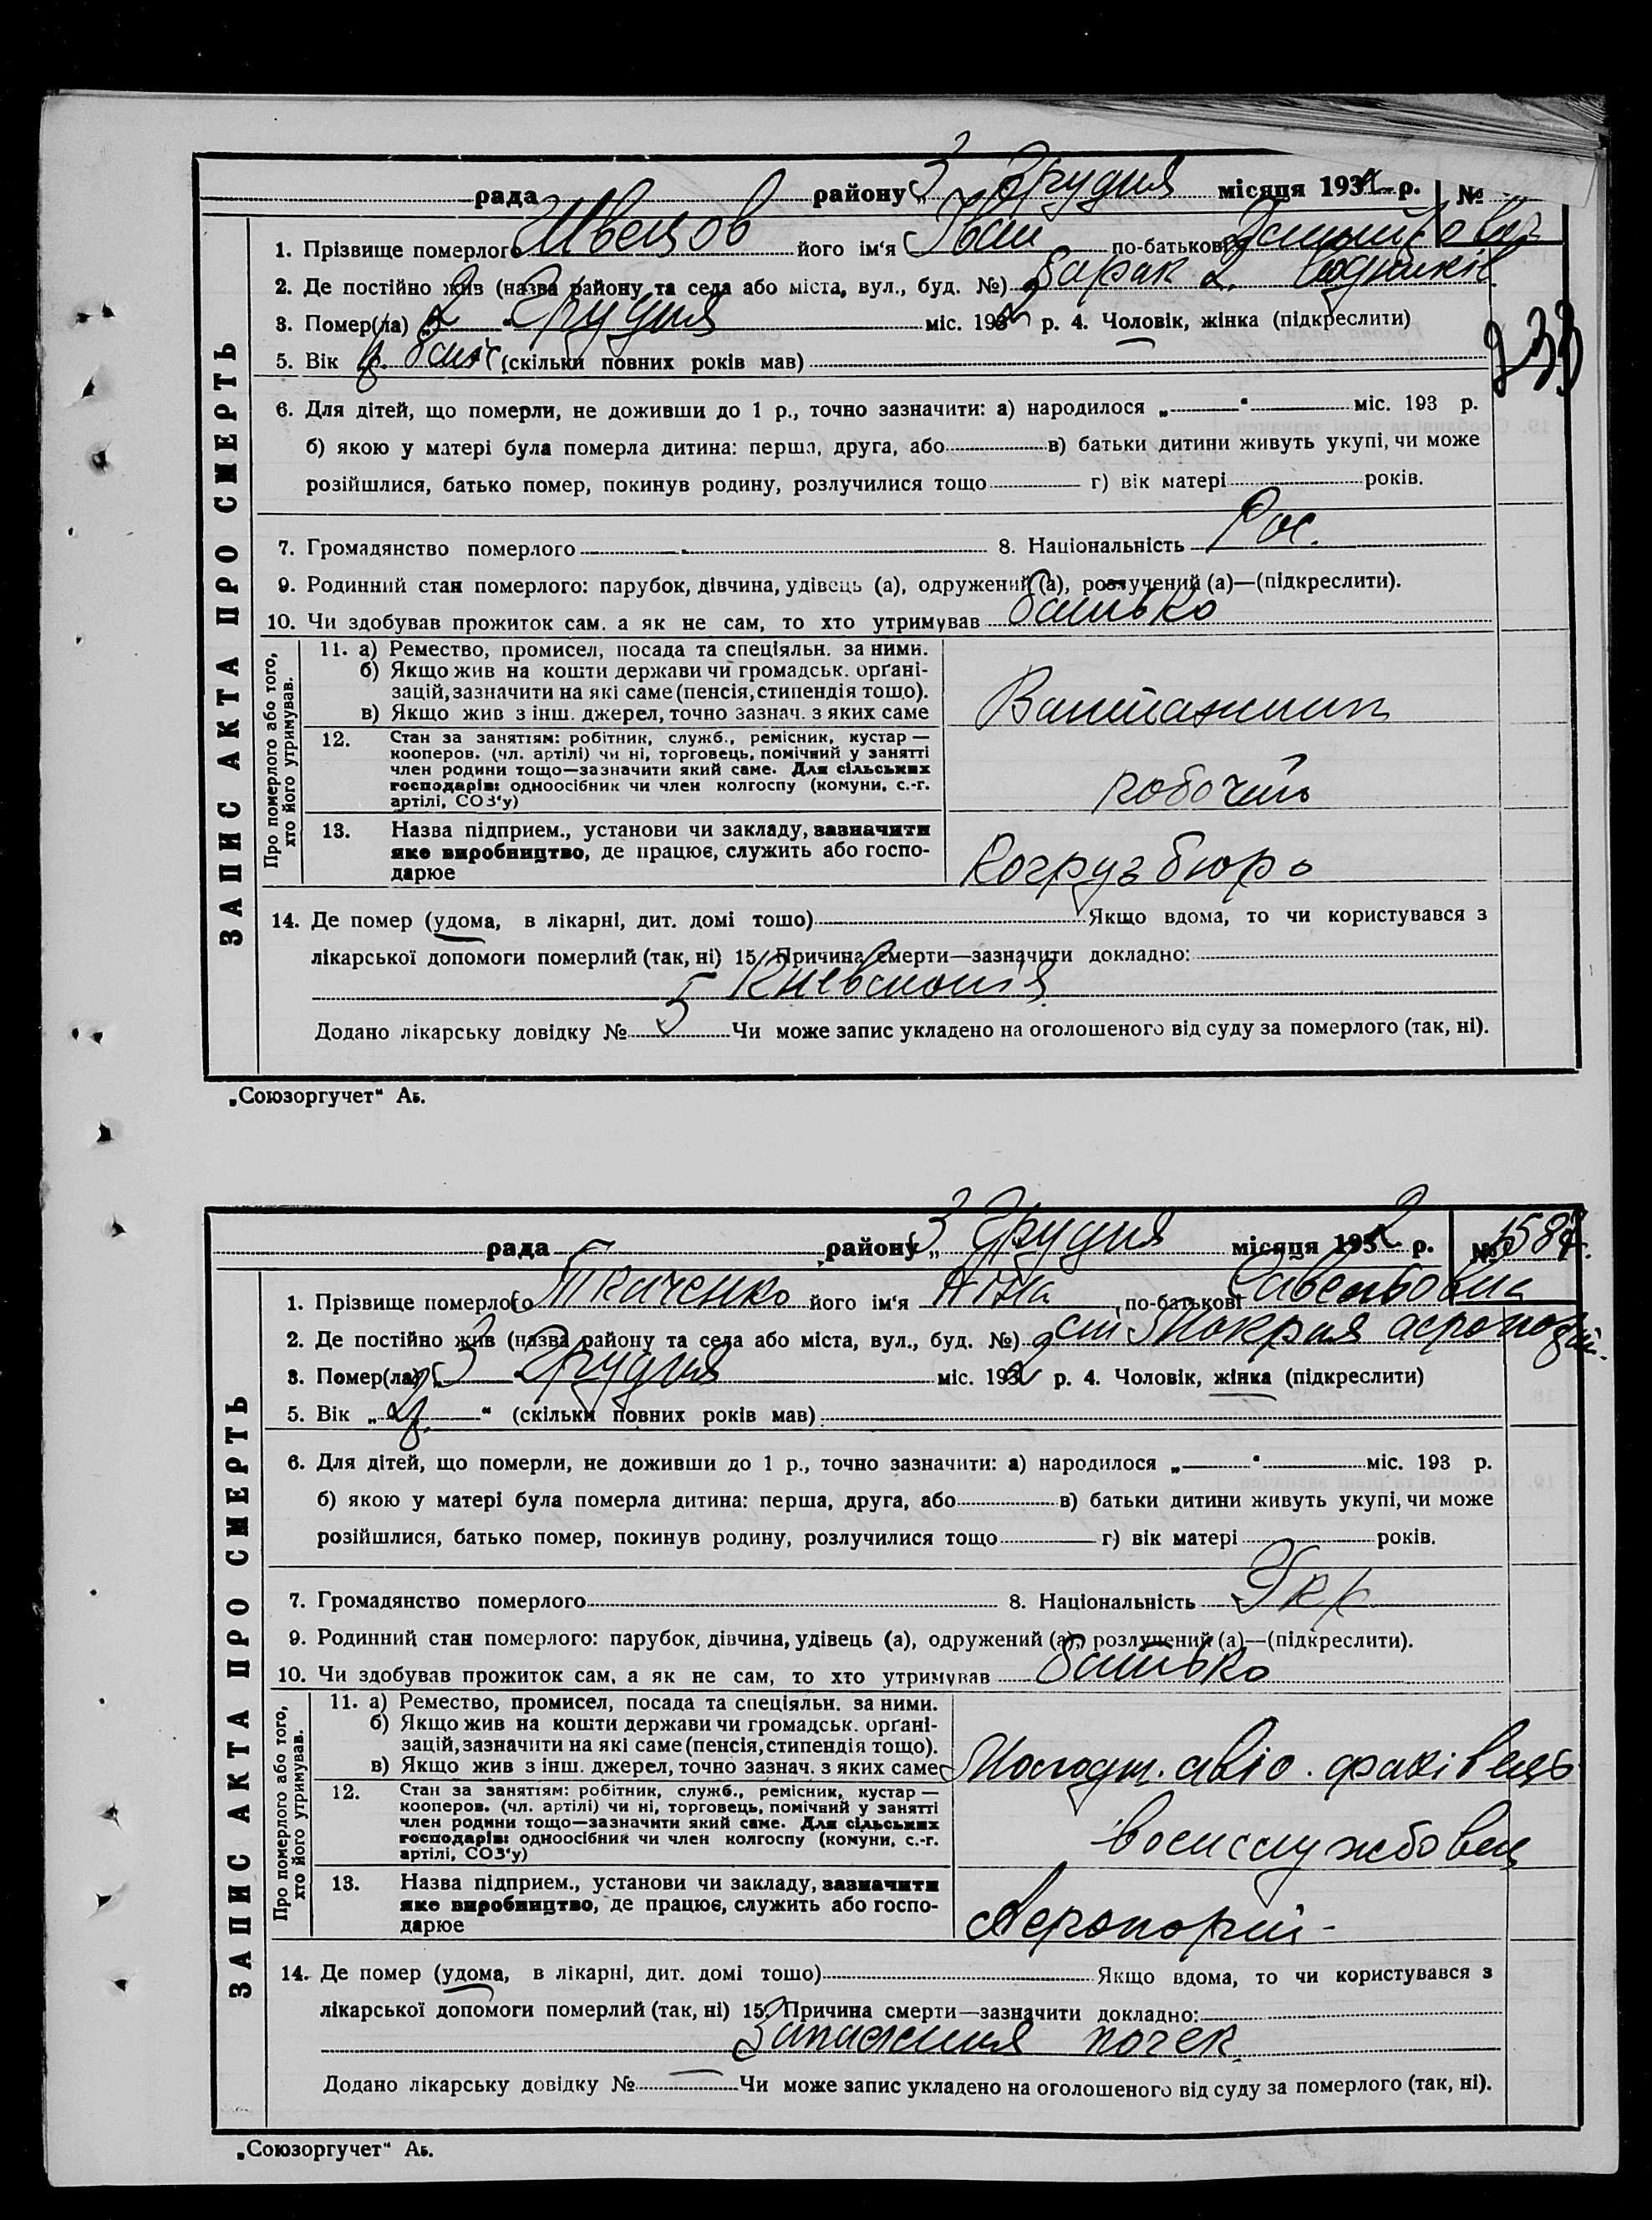 рада района „3 Грудня місяця 1932 р. №
1. Прізвище померлого Швецов його ім'я Іван по-батькові
2. Де постійно жив (назва району та села або міста, вул., буд. №) барак 2.
3. Помер(ла) „2 Грудня міс. 1932 р. 4. Чоловік, жінка (підкреслити)
233
5. Вік (скільки повних років мав)
6. Для дітей, що померли, не доживши до 1 р., точно зазначити: а) народилося „ “ міс. 193 р.
б) якою у матері була померла дитина: перша, друга, або в) батьки дитини живуть укупі, чи може
розійшлися, батько помер, покинув родину, розлучилися тощо г) вік матері років.
7. Громадянство померлого 8. Національність Рос.
9. Родинний стан померлого: парубок, дівчина, удівець (а), одружений (а), розлучений (а)—(підкреслити).
10. Чи здобував прожиток сам, а як не сам, то хто утримував батько
ЗАПИС АКТА ПРО СМЕРТЬ
Про померлого або того, хто його утримував.
11. а) Ремество, промисел, посада та спеціяльн. за ними.
б) Якщо жив на кошти держави чи громадськ. орґані-
зацій, зазначити на які саме (пенсія, стипендія тощо).
в) Якщо жив з інш. джерел, точно зазнач. з яких саме
12. Стан за заняттям: робітник, служб., ремісник, кустар —
кооперов. (чл. артілі) чи ні, торговець, помічний у занятті
член родини тощо—зазначити який саме. Для сільських
господарів: одноосібник чи член колгоспу (комуни, с.-г.
артілі, СОЗ'у)
робочий
13. Назва підприєм., установи чи закладу, зазначити
яке виробництво, де працює, служить або госпо-
дарює
14. Де помер (удома, в лікарні, дит. домі тощо) Якщо вдома, то чи користувався з
лікарської допомоги померлий (так, ні) 15. Причина смерти—зазначити докладно:
Додано лікарську довідку № 5 Чи може запис укладено на оголошеного від суду за померлого (так, ні).
„Союзоргучет“ Аь.
рада району „3 Грудня місяця 1932 р. №
1. Прізвище померлого Ткаченко його ім'я по-батькові
2. Де постійно жив (назва району та села або міста, вул., буд. №) ст Мокрая
3. Помер(ла) „3 Грудня міс. 1932 р. 4. Чоловік, жінка (підкреслити)
5. Вік „ “ (скільки повних років мав)
6. Для дітей, що померли, не доживши до 1 р., точно зазначити: а) народилося „ “ міс. 193 р.
б) якою у матері була померла дитина: перша, друга, або в) батьки дитини живуть укупі, чи може
розійшлися, батько помер, покинув родину, розлучилися тощо г) вік матері років.
7. Громадянство померлого 8. Національність Укр
9. Родинний стан померлого: парубок, дівчина, удівець (а), одружений (а), розлучений (а)—(підкреслити).
10. Чи здобував прожиток сам, а як не сам, то хто утримував батько
ЗАПИС АКТА ПРО СМЕРТЬ
Про померлого або того, хто його утримував.
11. а) Ремество, промисел, посада та спеціяльн. за ними.
б) Якщо жив на кошти держави чи громадськ. орґані-
зацій, зазначити на які саме (пенсія, стипендія тощо).
в) Якщо жив з інш. джерел, точно зазнач. з яких саме
авіо. фахівець
12. Стан за заняттям: робітник, служб., ремісник, кустар —
кооперов. (чл. артілі) чи ні, торговець, помічний у занятті
член родини тощо—зазначити який саме. Для сільських
господарів: одноосібник чи член колгоспу (комуни, с.-г.
артілі, СОЗ'у)
13. Назва підприєм., установи чи закладу, зазначити
яке виробництво, де працює, служить або госпо-
дарює
Аеропорт
14. Де помер (удома, в лікарні, дит. домі тощо) Якщо вдома, то чи користувався з
лікарської допомоги померлий (так, ні) 15. Причина смерти—зазначити докладно:
Запалення почек
Додано лікарську довідку № — Чи може запис укладено на оголошеного від суду за померлого (так, ні).
„Союзоргучет“ Аь.